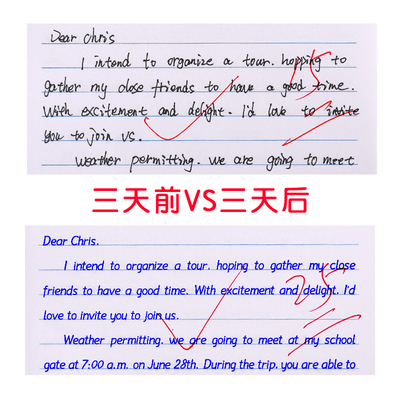 Dear Chris
I intend to organize a tour. hopping to
gather my close friends to have a good time.
With excitement and delight. I'd love to invite
you to join us.
Weather permitting. we are going to meet
15
三天前VS三天后
Dear Chris,
I intend to organize a tour. hoping to gather my close
friends to have a good time. With excitement and delight. I'd
love to invite you to join us.
Weather permitting. we are going to meet at my school
gate at 7:00 a.m. on June 28th. During the trip, you are able to
25